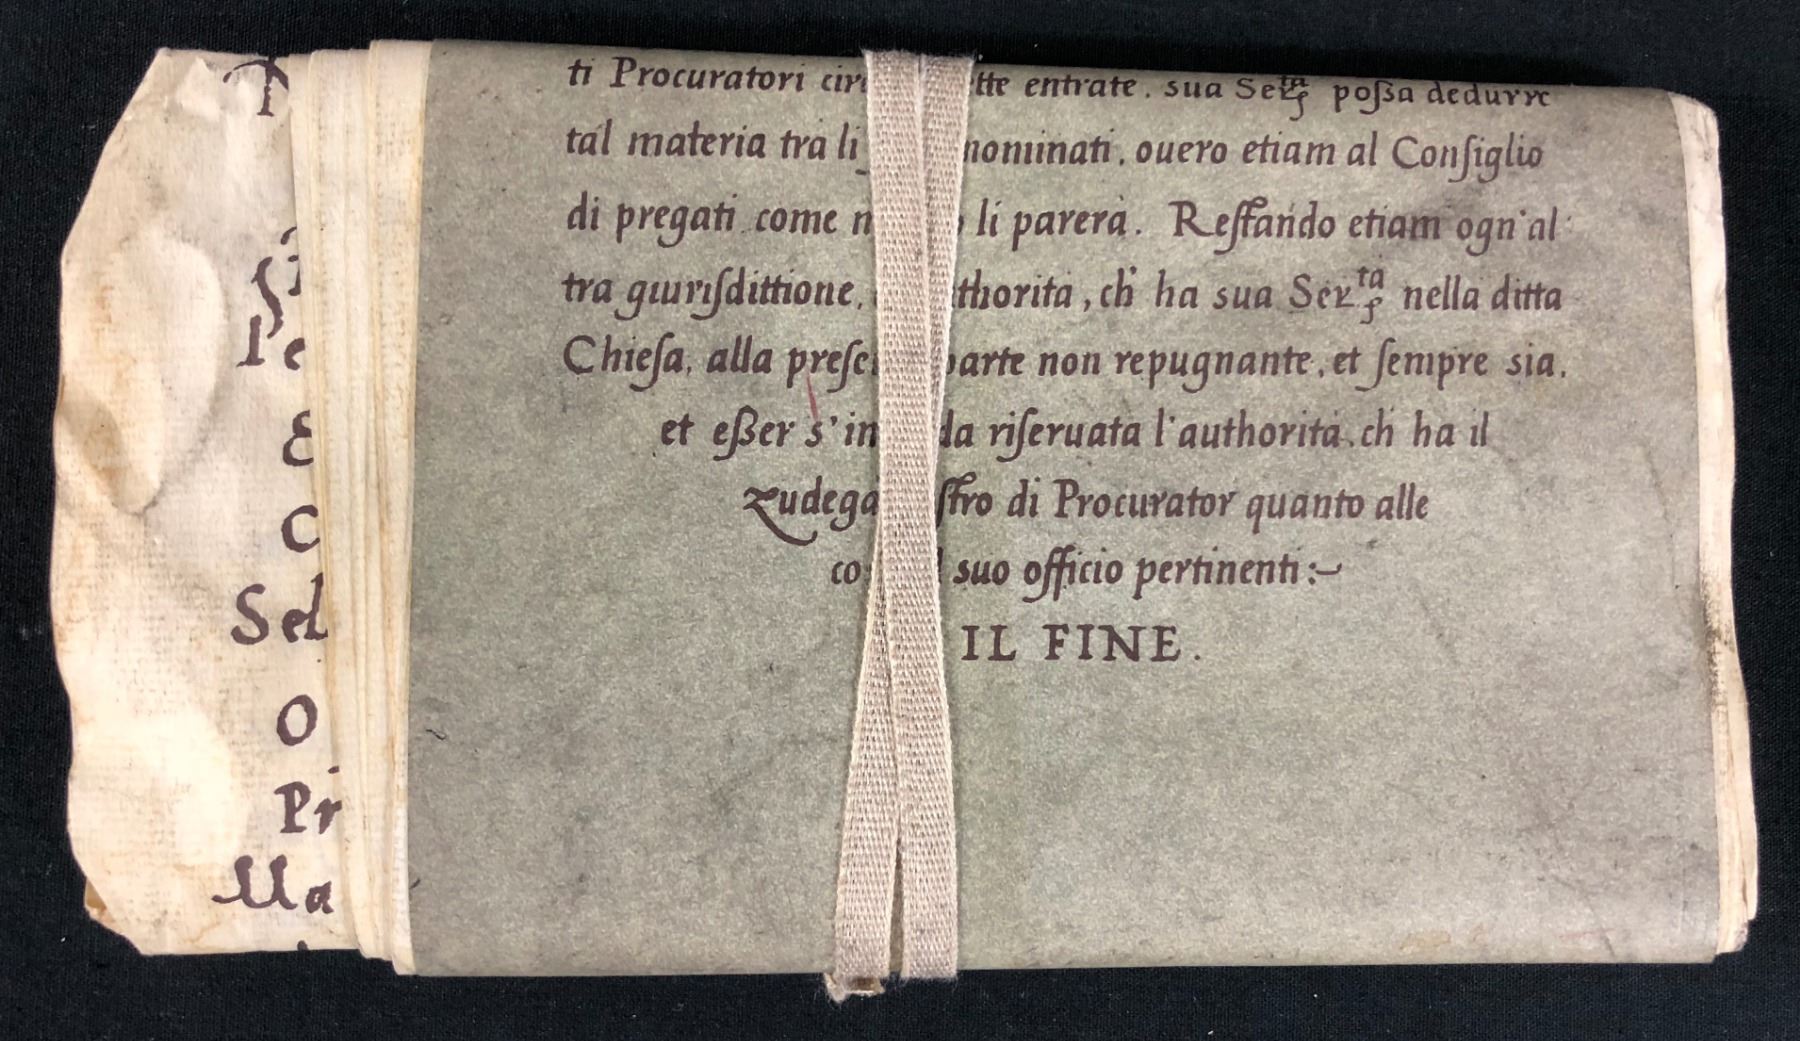 ti Procuratori tte entrate. sua Ser.tà possa dedurre
tal materia tra li nominati, ouero etiam al Consiglio
di pregati come li parerà. Restando etiam ogn'al
tra giurisdittione, thorità, ch' ha sua Ser.tà nella ditta
Chiesa, alla parte non repugnante, et sempre sia,
et esser s' in da riseruata l'authorità, ch ha il
Zudega stro di Procurator quanto alle
co suo officio pertinenti:~
IL FINE.
T
Pe
E
C
Sel
O
Pr
Ma